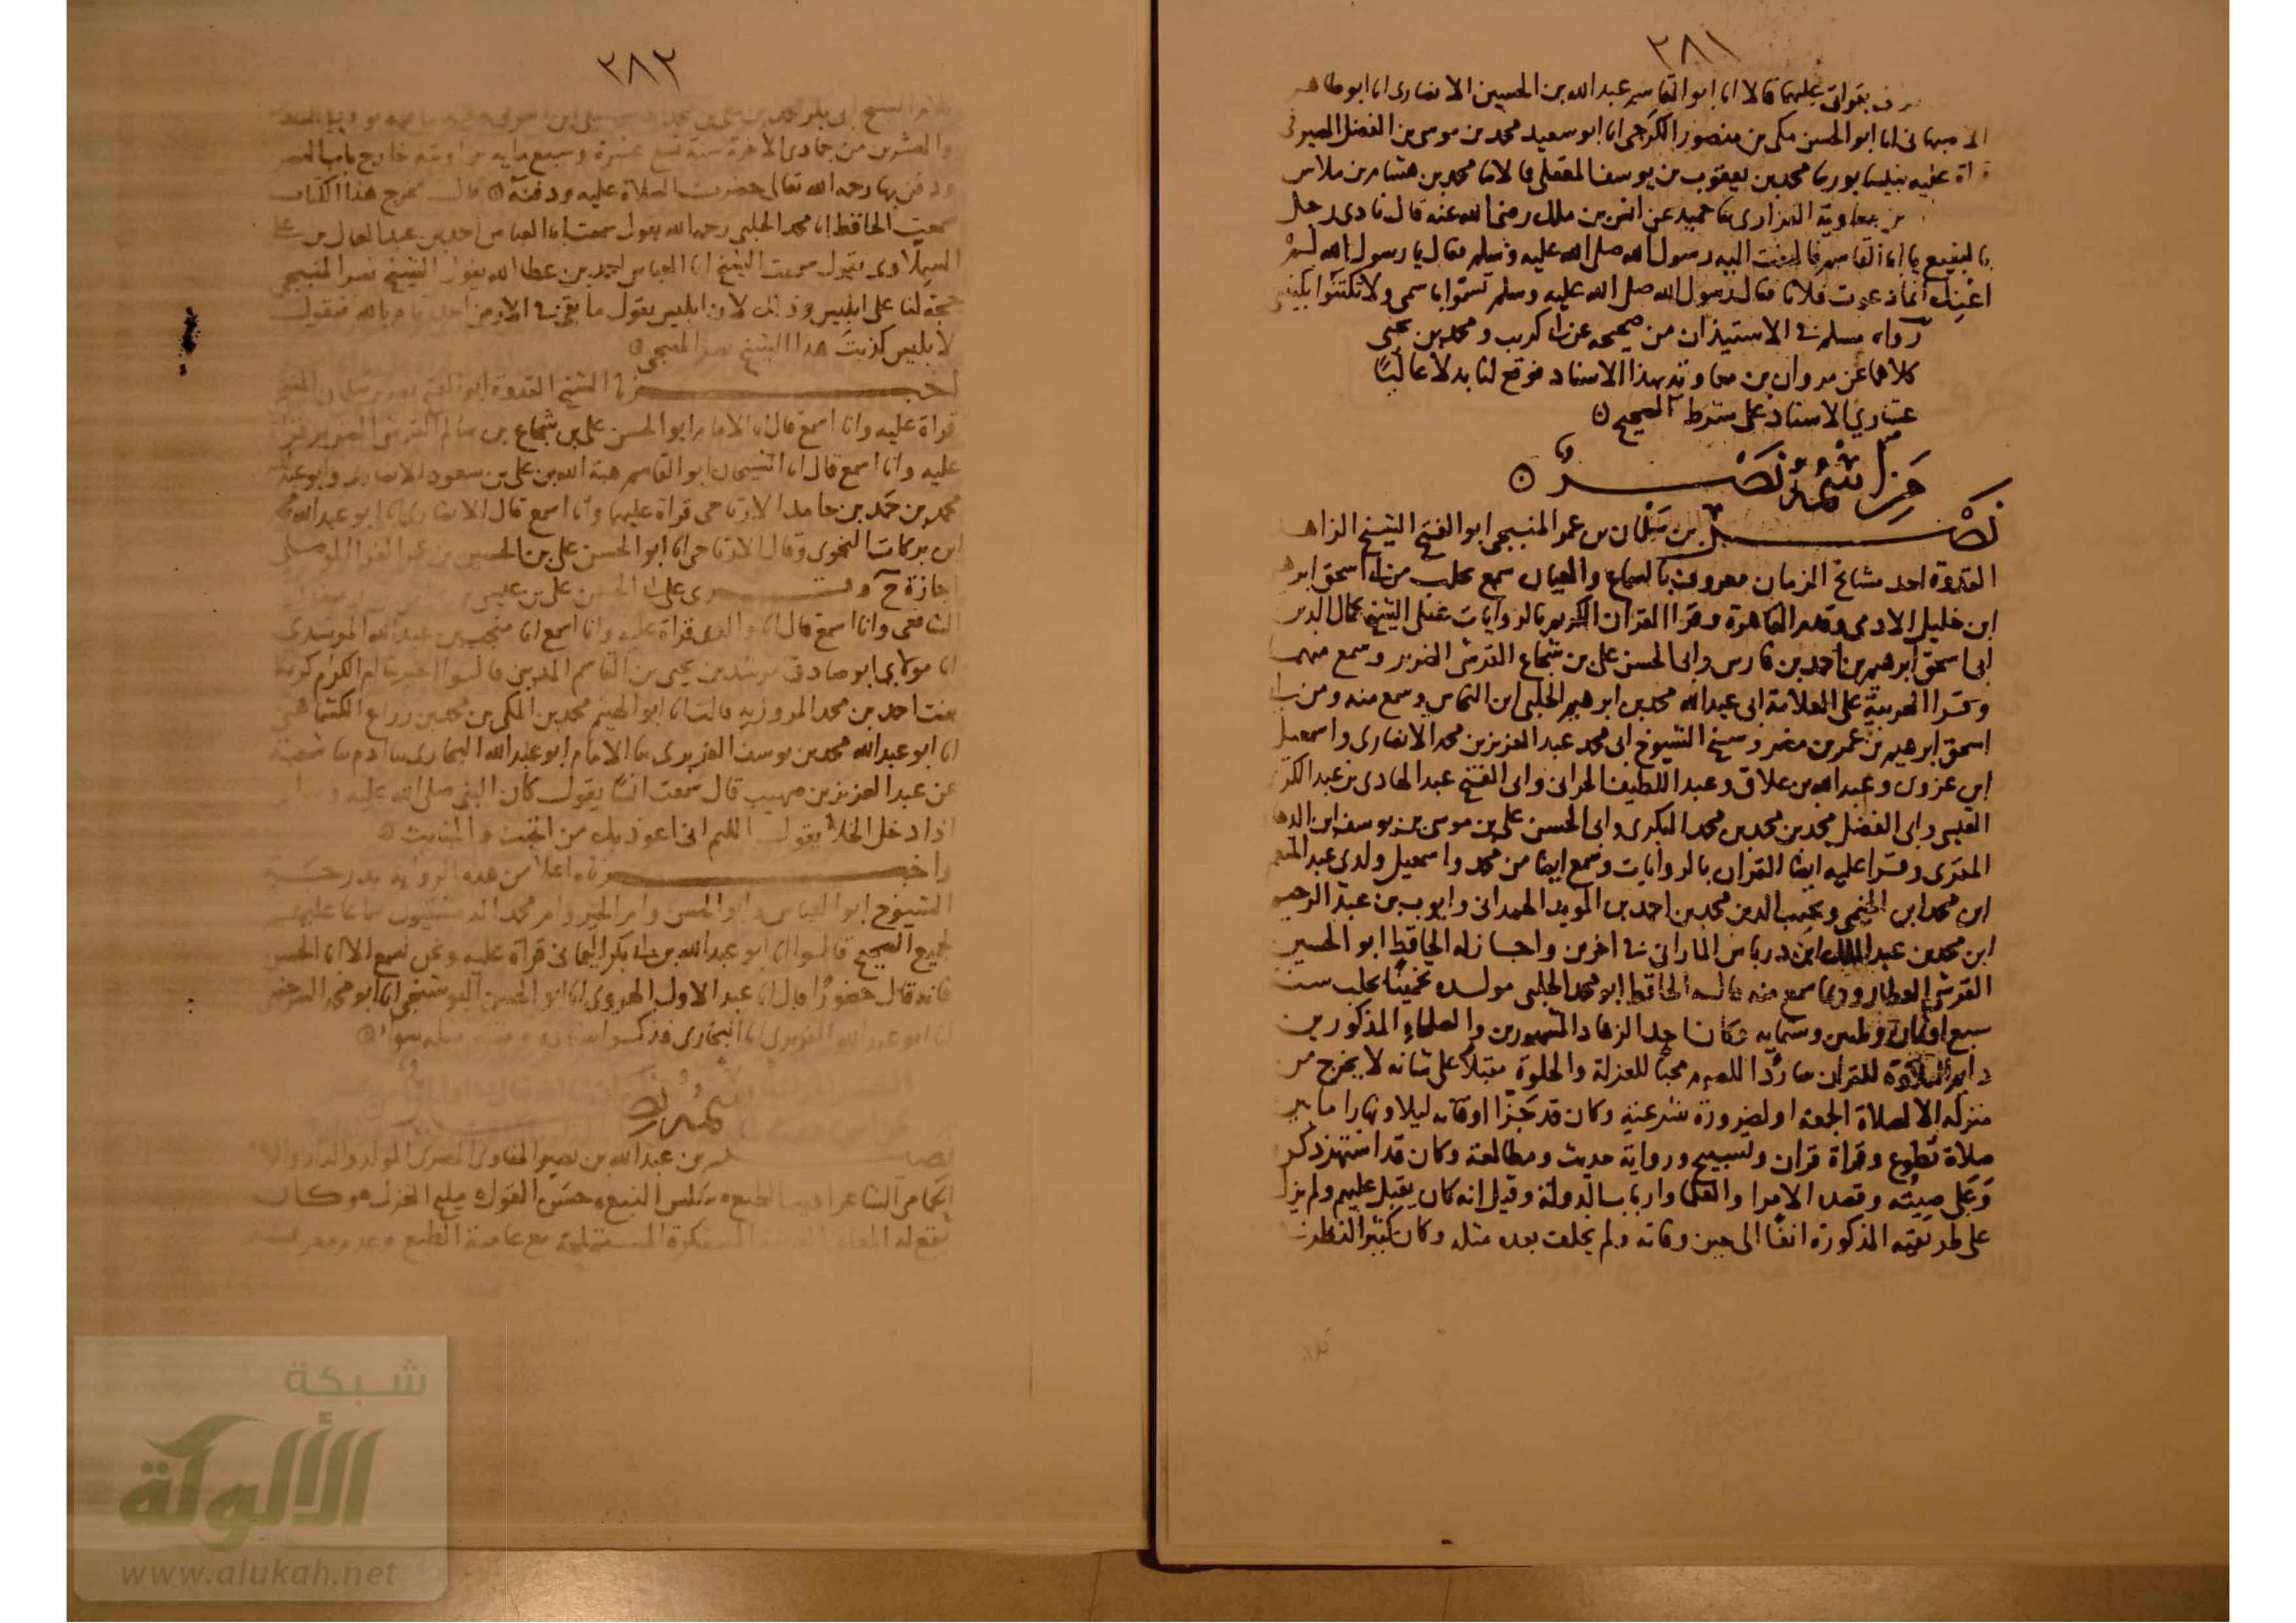 ٢٨١
بقراتي عليهما قالا انا ابو القاسم عبد الله بن الحسين الانصاري انا ابو طاهر
انا ابو الحسن مكي بن منصور الكرجي انا ابو سعيد محمد بن موسى بن الفضل الصيرفي
عليه بنيسابور ثنا محمد بن يعقوب بن يوسف المعقلي قالا ثنا محمد بن هشام بن ملاس
بن معاوية الفزاري ثنا حميد عن انس بن ملك رضي الله عنه قال نادى رجل
بالبقيع يا ابا القاسم فالتفت اليه رسول الله صلى الله عليه وسلم فقال يا رسول الله لم
اعنك انما دعوت فلانا فقال رسول الله صلى الله عليه وسلم تسموا باسمي ولا تكتنوا بكنيتي
رواه مسلم في الاستيذان من صحيحه عن ابي كريب ومحمد بن يحيى
كلاهما عن مروان بن معاوية بهذا الاسناد فوقع لنا بدلا عاليا
الاسناد على شرط الصحيح
من اسمه نصر
نصر بن سلمان بن عمر المنبجي ابو الفتح الشيخ الزاهد
القدوة احد مشائخ الزمان معروف بالسماع والعيان سمع بحلب من ابي اسحق ابرهيم
ابن خليل الادمي وقدم القاهرة وقرا القران الكريم بالروايات على الشيخ كمال الدين
ابي اسحق ابرهيم بن احمد بن فارس وابي الحسن علي بن شجاع القرشي الضرير وسمع منهما
وقرا العربية على العلامة ابي عبد الله محمد بن ابرهيم الحلبي ابن النحاس وسمع منه ومن ابي
اسحق ابرهيم بن عمر بن مضر وشيخ الشيوخ ابي محمد عبد العزيز بن محمد الانصاري واسمعيل
ابن عزون وعبد الله بن علاق وعبد اللطيف الحراني وابي الفتح عبد الهادي بن عبد الكريم
القيسي وابي الفضل محمد بن محمد بن محمد البكري وابي الحسن علي بن موسى بن يوسف ابن الدهان
المقري وقرا عليه ايضا القران بالروايات وسمع ايضا من محمد واسمعيل ولدي عبد المنعم
ابن محمد ابن الخيمي ونجيب الدين محمد بن احمد بن المويد الهمداني وايوب بن عبد الرحيم
ابن محمد بن عبد الملك ابن درباس الماراني في اخرين واجاز له الحافظ ابو الحسين
القرشي العطار وربما سمع منه قال الحافظ ابو محمد الحلبي مولده تخمينا بحلب سنة
سبع او ثمان وثلثين وستمايه وكان احد الزهاد المشهورين والعلماء المذكورين
دايم التلاوة للقران محبا للعزلة والخلوة مقبلا على شانه لا يخرج من
منزله الا لصلاة الجمعة او لضرورة شرعية وكان قد جزا اوقاته ليلا ونهارا ما بين
صلاة تطوع وقراة قران وتسبيح ورواية حديث ومطالعة وكان قد اشتهر ذكره
وعلى صيته وقصده الامرا والعلما وارباب الدولة وقيل انه كان يقبل عليهم ولم يزل
على طريقته المذكورة انفا الى حين وفاته ولم يخلف بعده مثله وكان كثير النظر في
٢٨٢
كلام الشيخ ابي بكر محمد بن علي بن محمد
والعشرين من جمادى الاخرة سنة تسع عشرة وسبع مايه بزاويته خارج باب النصر
ودفن بها رحمه الله تعالى حضرت الصلاة عليه ودفنه قال مخرج هذا الكتاب
سمعت الحافظ ابا محمد الحلبي رحمه الله يقول سمعت ابا العباس احمد بن عبد العال بن علي
يقول سمعت الشيخ ابا العباس احمد بن عطا الله يقول الشيخ نصر المنبجي
حجة لنا على ابليس وذلك لان ابليس يقول ما بقي في الارض احد فنقول
لابليس كذبت هذا الشيخ نصر المنبجي
اخبرنا الشيخ القدوة ابو الفتح نصر بن سلمان المنبجي
قراة عليه وانا اسمع قال انا الامام ابو الحسن علي بن شجاع بن سالم القرشي الضرير قراة
عليه وانا اسمع قال انا الشيخان ابو القاسم هبة الله بن علي بن سعود الانصاري وابو عبد الله
محمد بن حمد بن حامد الارتاحي قراة عليهما وانا اسمع قال الانصاري انا ابو عبد الله محمد
ابن بركات النحوي وقال الارتاحي انا ابو الحسن علي بن الحسين بن عمر الفرا الموصلي
اجازة ح وقري على ابي الحسن علي بن عيسى
الشافعي وانا اسمع قال انا والدي قراة عليه وانا اسمع انا منجب بن عبد الله المرشدي
انا مولاي ابو صادق مرشد بن يحيى بن القاسم المديني قالوا اخبرتنا ام الكرام كريمة
بنت احمد بن محمد المروزية قالت انا ابو الهيثم محمد بن المكي بن محمد بن زراع الكشماهني
انا ابو عبد الله محمد بن يوسف الفربري ثنا الامام ابو عبد الله البخاري ثنا ادم ثنا شعبة
عن عبد العزيز بن صهيب قال سمعت انسا يقول كان النبي صلى الله عليه وسلم
اذا دخل الخلا يقول اللهم اني اعوذ بك من الخبث والخبايث
واخبرناه اعلا من هذه الرواية بدرجتين
الشيوخ ابو العباس وابو الحسن وام الخير وام محمد الدمشقيون سماعا عليهم
لجميع الصحيح قالوا انا ابو عبد الله بن ابي بكر اليماني قراة عليه ونحن نسمع الا ابا الحسن
فانه قال حضورا قال انا عبد الاول الهروي انا ابو الحسن البوشنجي انا ابو محمد السرخسي
انا ابو عبد الله الفربري انا البخاري فذكر سواء
نصير
نصير بن عبد الله بن نصير المناوي المصري المولد والدار
الحمامي الشاعر حسن القول مليح الغزل وكان
تقع له المعاني المبتكرة المستملحة مع عامية الطبع وعدم معرفته
شبكة
الألوكة
www.alukah.net